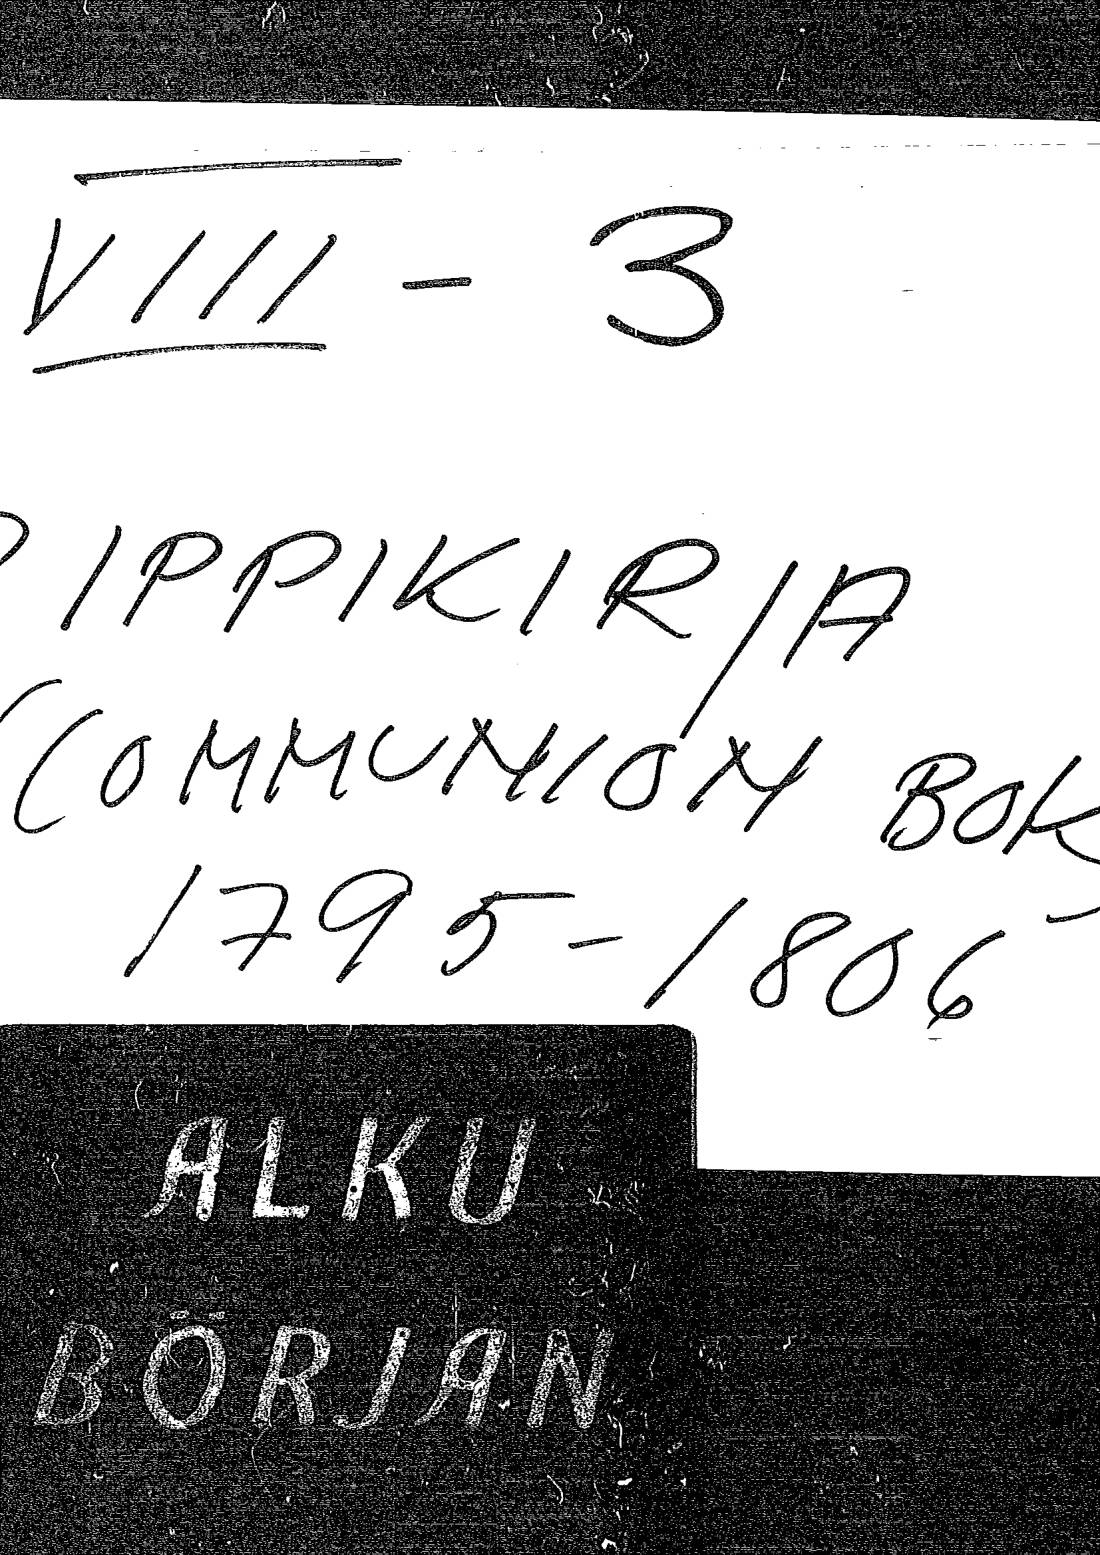 VIII - 3
RIPPIKIRJA
(COMMUNION BOK
1795-1806
ALKU
BÖRJAN